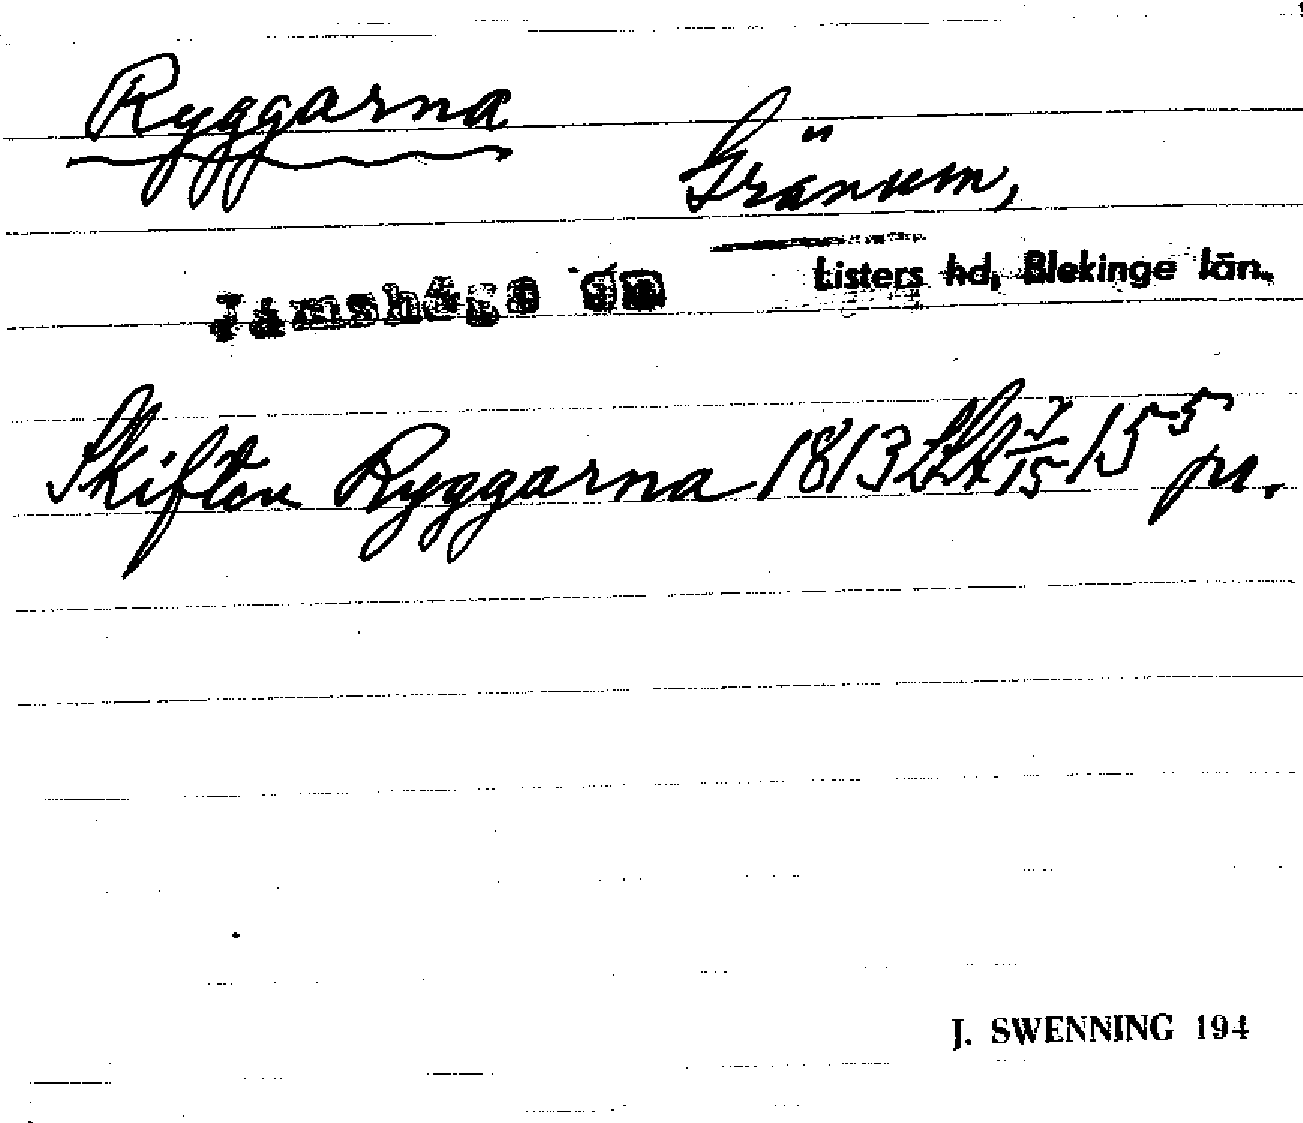 Ryggarna
Gränum,
Jämshögs sn Listers hd, Blekinge län.
Skiften Ryggarna 1813 LSA 7/15 15⁵ pu.
J. SWENNING 194